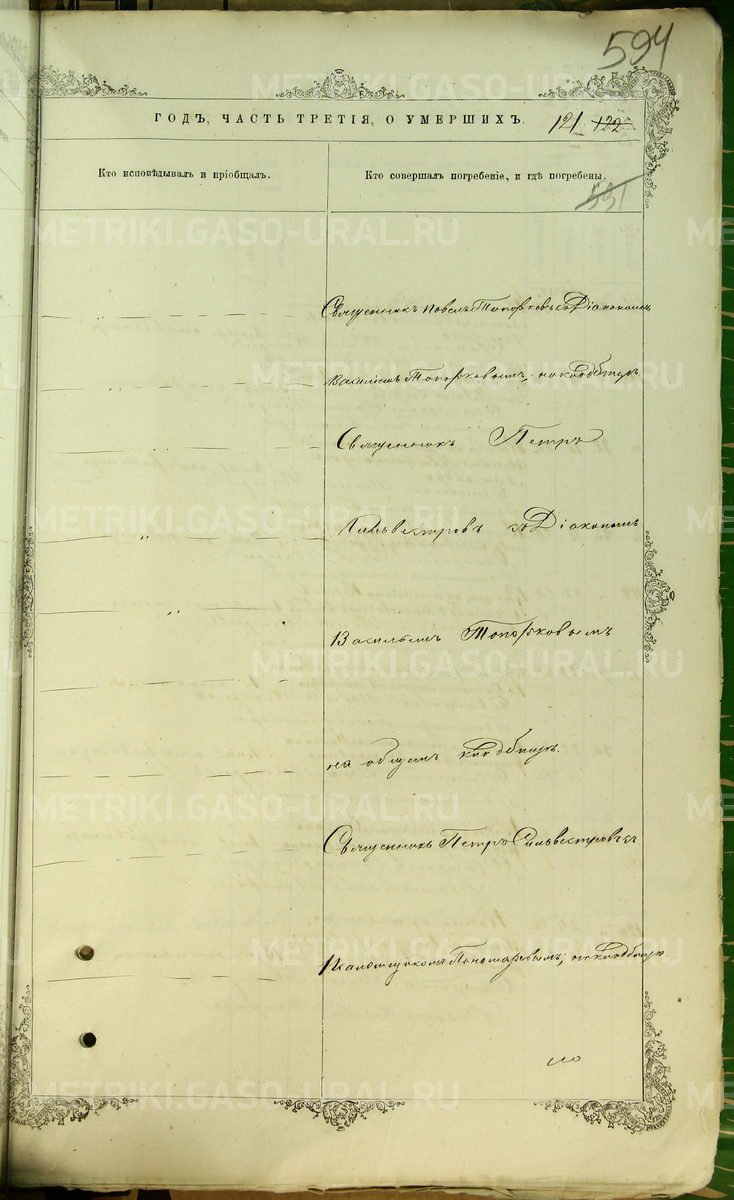 594
ГОДЪ, ЧАСТЬ ТРЕТІЯ, О УМЕРШИХЪ. 121 122
Кто исповѣдывалъ и пріобщалъ.
Кто совершалъ погребеніе, и гдѣ погребены.
591
Священникъ Павелъ Топорковъ съ Діакономъ
Василіемъ Топорковымъ, на кладбищѣ
Священникъ Петръ
Сильвестровъ съ Діакономъ
Васильемъ Топорковымъ
на общемъ кладбищѣ.
Священникъ Петръ Сильвестровъ съ
Псаломщикомъ Пономаревымъ, на кладбищѣ.
METRIKI.GASO-URAL.RU